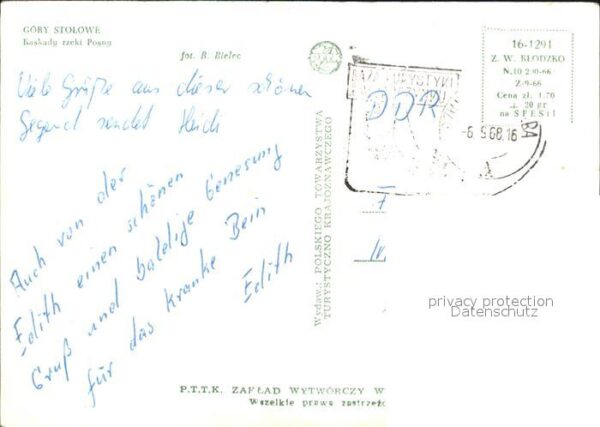 GÓRY STOŁOWE
Kaskady rzeki Posny
fot. B. Bielec
Viele Grüße aus dieser schönen
Gegend sendet Heidi
Auch von der
Edith einen schönen
Gruß und baldige Genesung
für das kranke Bein
Edith
Wydaw.: POLSKIEGO TOWARZYSTWA
TURYSTYCZNO KRAJOZNAWCZEGO
TURYSTYKI
DDR
-6.9.68.16
16-1291
Z. W. KŁODZKO
Z-9-66
Cena zł. 1.70
+ 20 gr
na SFBSiI
privacy protection
Datenschutz
P.T.T.K. ZAKŁAD WYTWÓRCZY W
Wszelkie prawa zastrzeżo